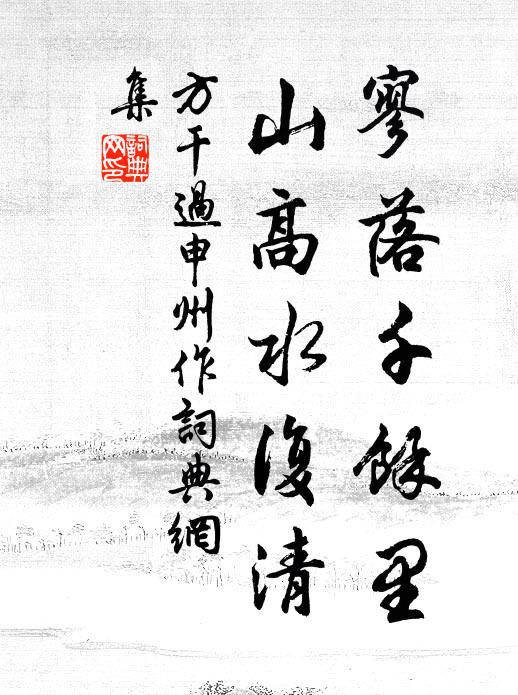 寥落千餘里
山高水復清
方干過申州作詞典網
集
詞典
网印